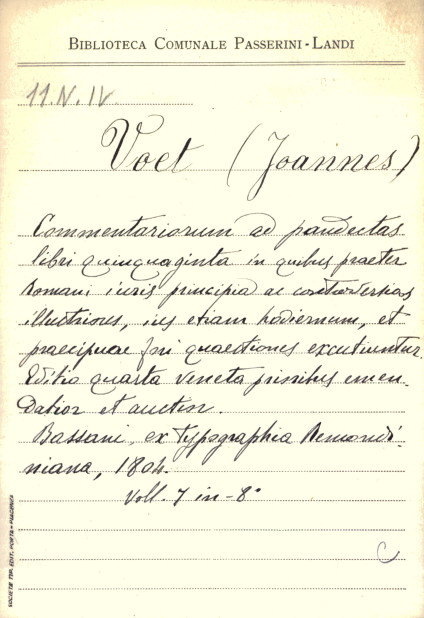 BIBLIOTECA COMUNALE PASSERINI-LANDI
11.N.IV.
Voet (Joannes)
Commentariorum ad pandectas
libri quinquaginta in quibus praeter
romani iuris principia ac controversias
illustriores, ius etiam hodiernum, et
praecipuae fori quaestiones excutiuntur.
Editio quarta veneta prioribus emen-
datior et auctior.
Bassani, ex typographia Remondi-
niana, 1804.
Voll. 7 in-8°
C
SOCIETÀ TIP. EDIT. PORTA - PIACENZA